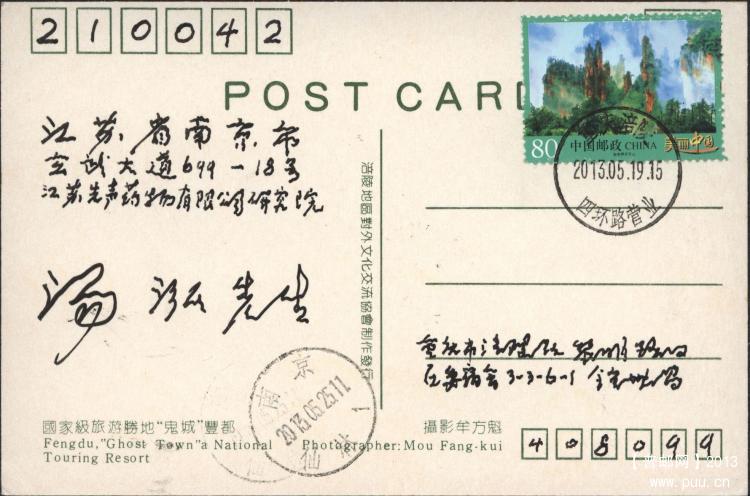 210042
POST CARD
80 中国邮政 CHINA
美丽中国
2013.05.19.15
四环路营业
江苏省南京市
玄武大道699-18号
江苏先声药物有限公司研究院
汤 先生
涪陵地區對外文化交流協會製作發行
重庆市涪陵区
3-3-6-1
南京
2013.05.25.11
仙
國家級旅游勝地"鬼城"豐都
Fengdu,"Ghost Town"a National
Touring Resort
攝影牟方魁
Photographer:Mou Fang-kui
408099
2013
www.puu.cn